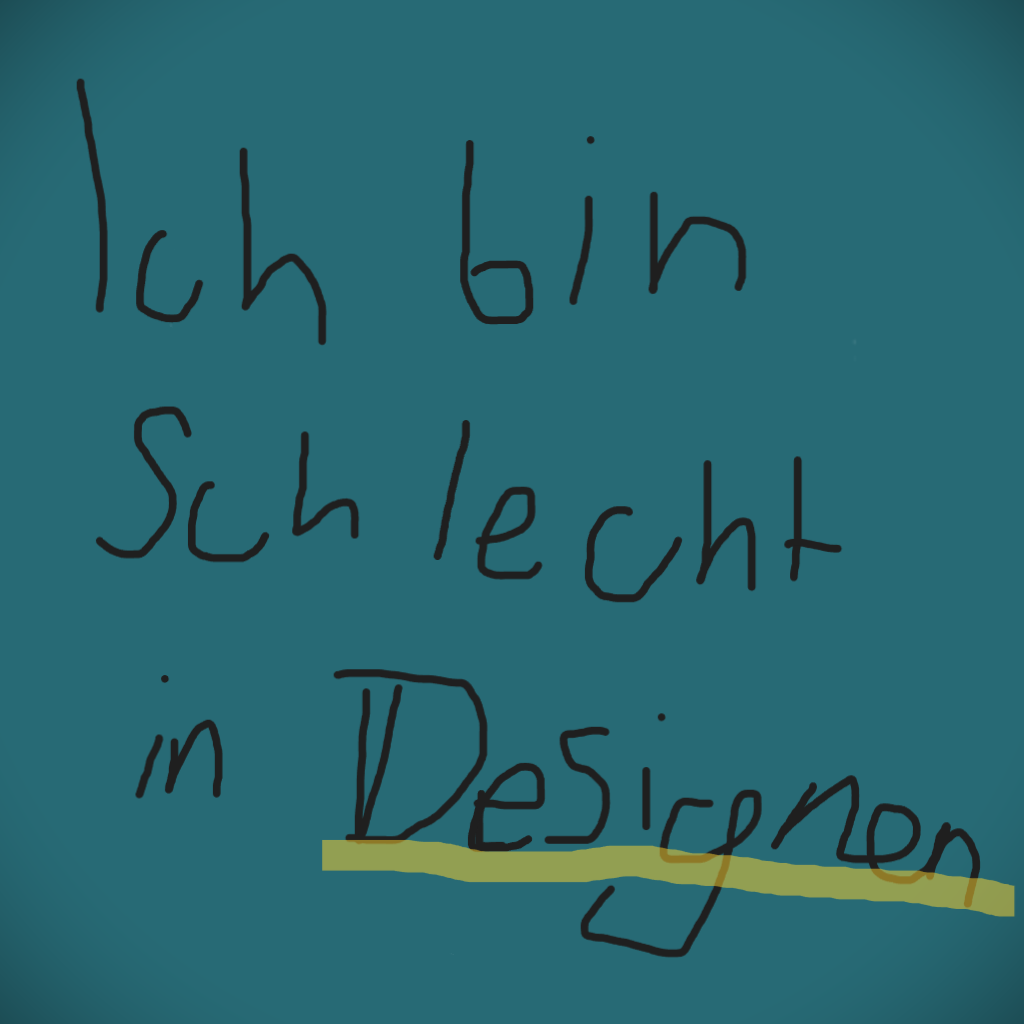 Ich bin
Schlecht
in Designen